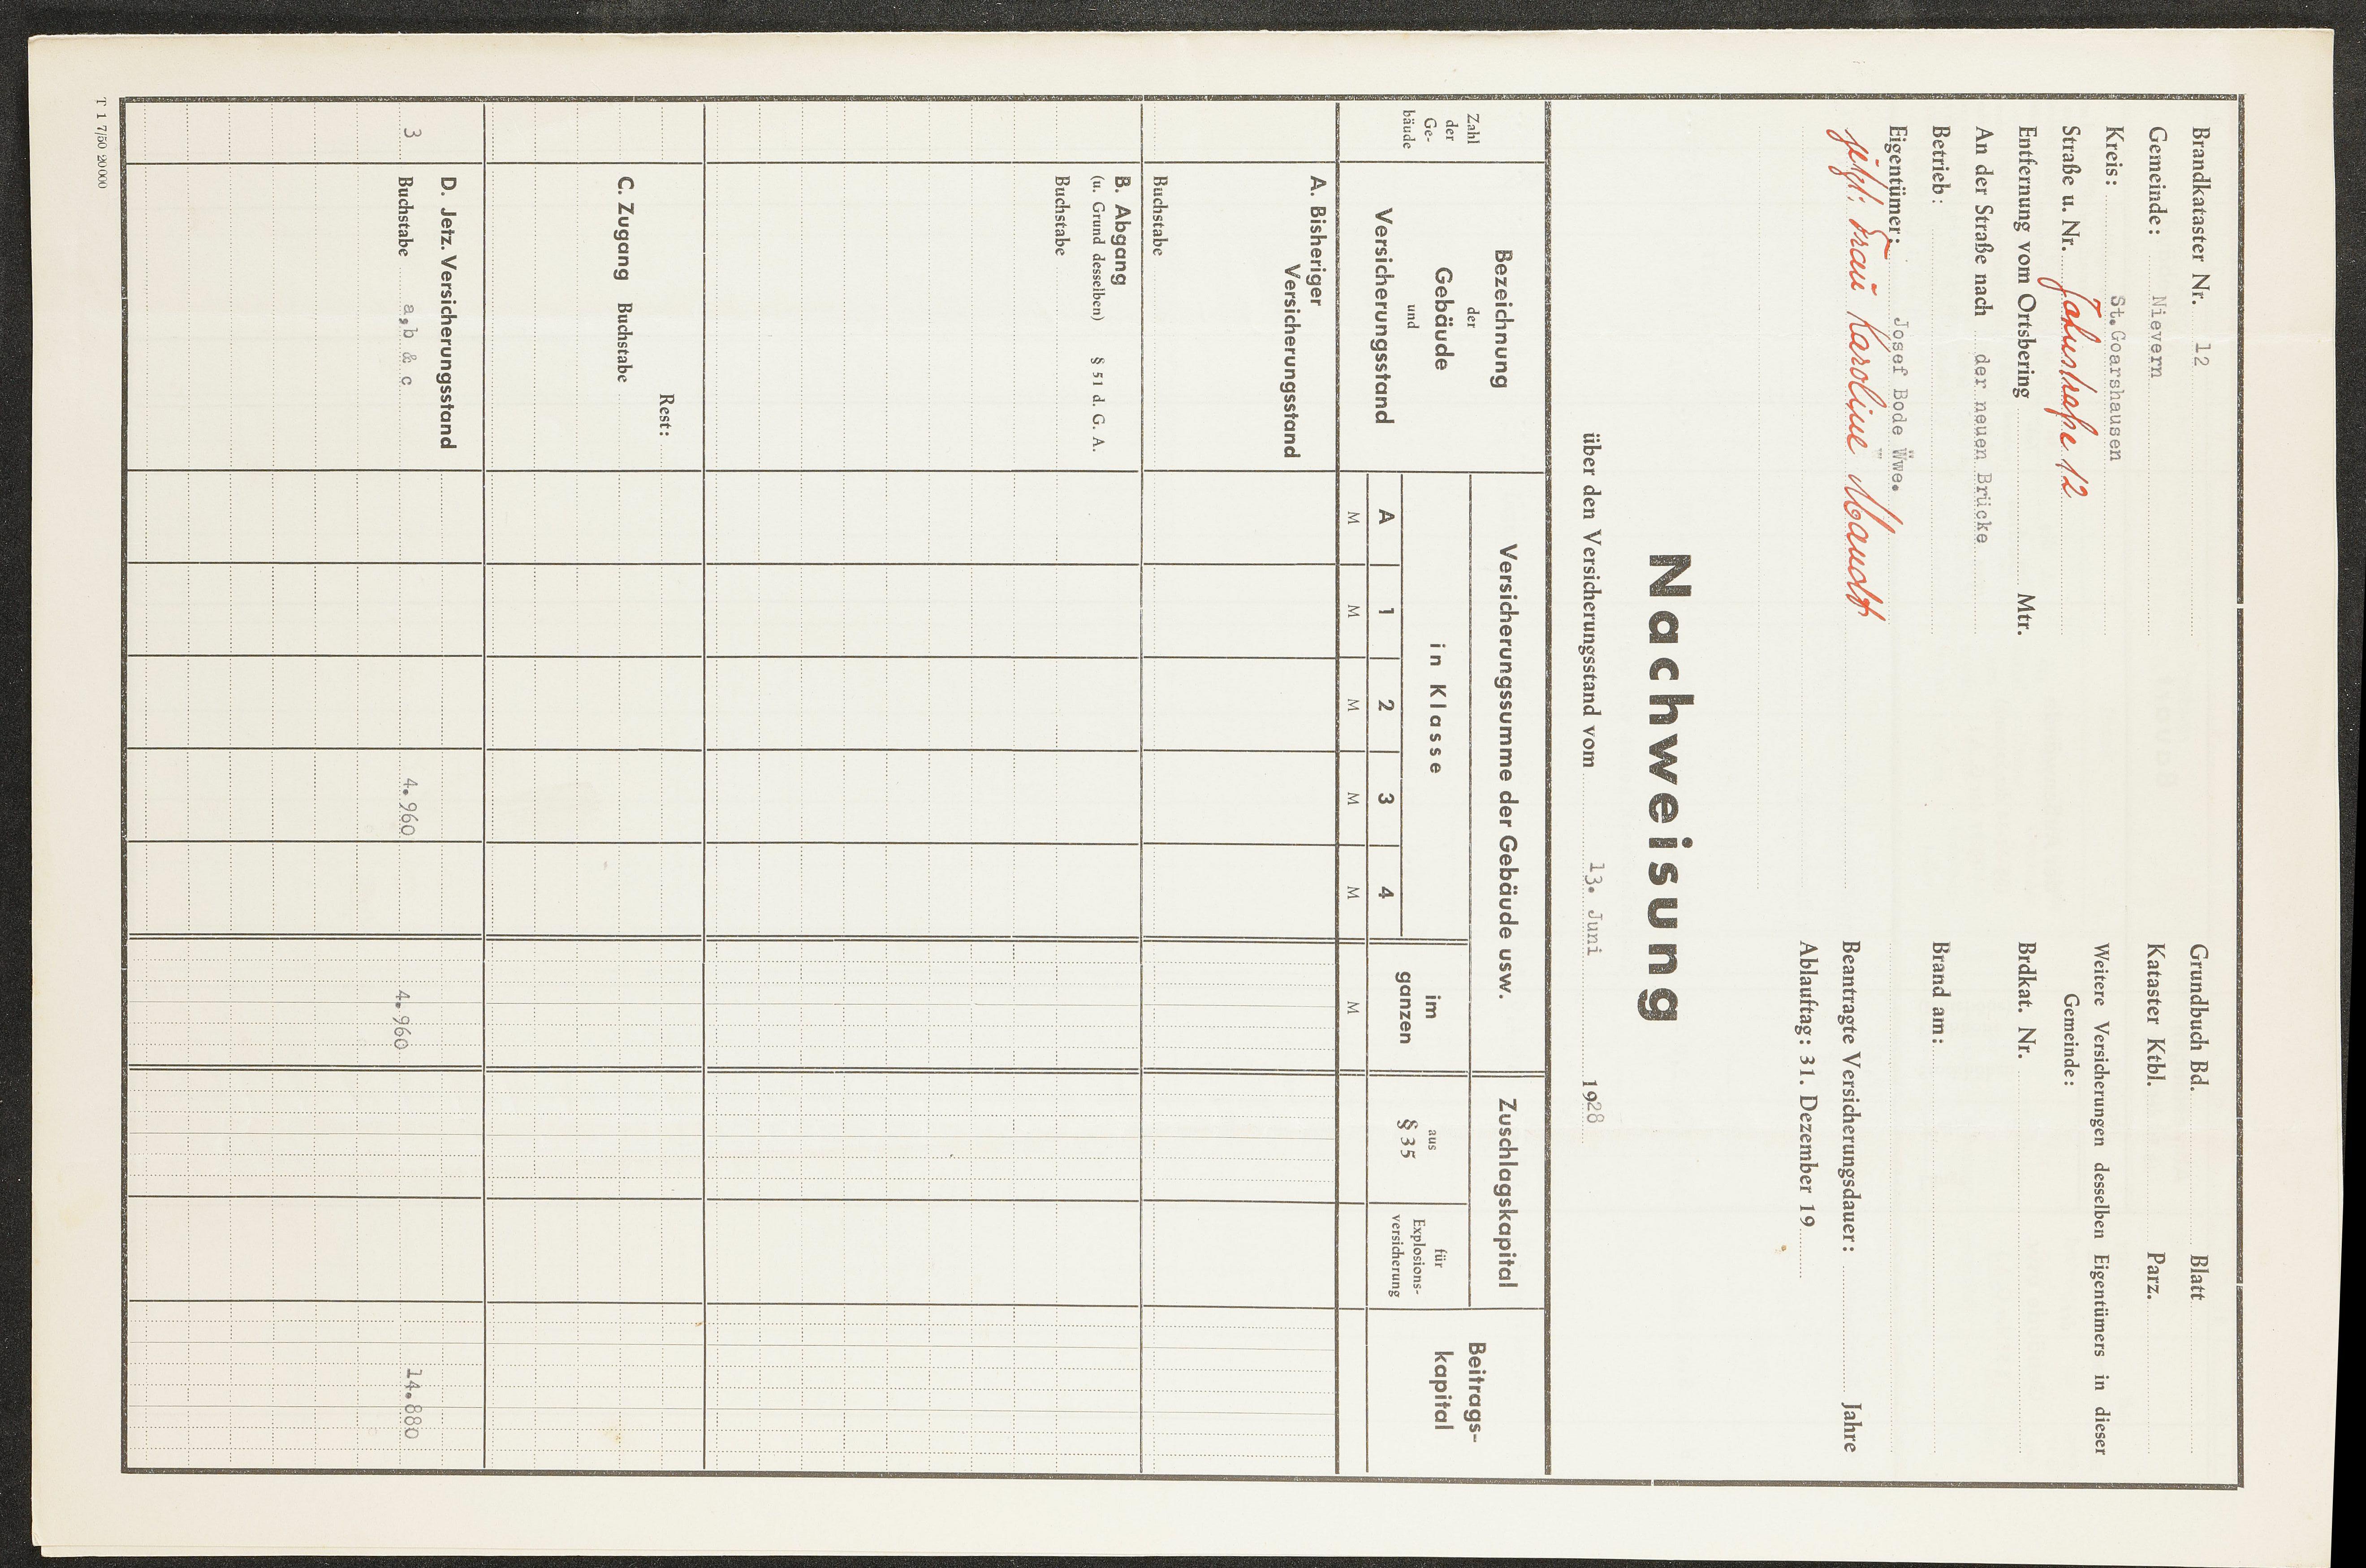 Brandkataster Nr. 12
Gemeinde: Nievern
Kreis: St.Goarshausen
Straße u. Nr. Jahnstraße 12
Entfernung vom Ortsbering Mtr.
An der Straße nach der neuen Brücke
Betrieb:
Eigentümer: Josef Bode Wwe.
jetzt: Frau Karoline Mandt
Grundbuch Bd. Blatt
Kataster Ktbl. Parz.
Weitere Versicherungen desselben Eigentümers in dieser
Gemeinde:
Brdkat. Nr.
Brand am:
Beantragte Versicherungsdauer: Jahre
Ablauftag: 31. Dezember 19
Nachweisung
über den Versicherungsstand vom 13. Juni 1928
Zahl
der
Ge-
bäude
Bezeichnung
der
Gebäude
und
Versicherungsstand
Versicherungssumme der Gebäude usw.
in Klasse
A 1 2 3 4
im
ganzen
M M M M M M
Zuschlagskapital
aus
§ 35
für
Explosions-
versicherung
Beitrags-
kapital
A. Bisheriger
Versicherungsstand
Buchstabe
B. Abgang
(u. Grund desselben) § 51 d. G. A.
Buchstabe
Rest:
C. Zugang Buchstabe
D. Jetz. Versicherungsstand
3 Buchstabe a,b & c 4.960 4.960 14.880
T 1 7/50 20000